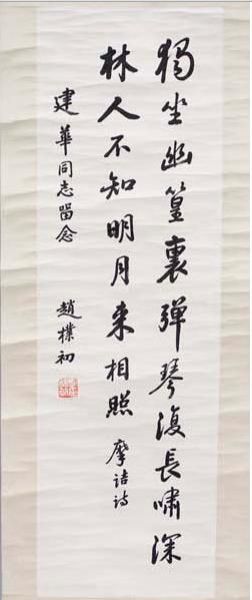 獨坐幽篁裏弹琴復長嘯深
林人不知明月来相照 摩诘诗
建華同志留念 趙樸初